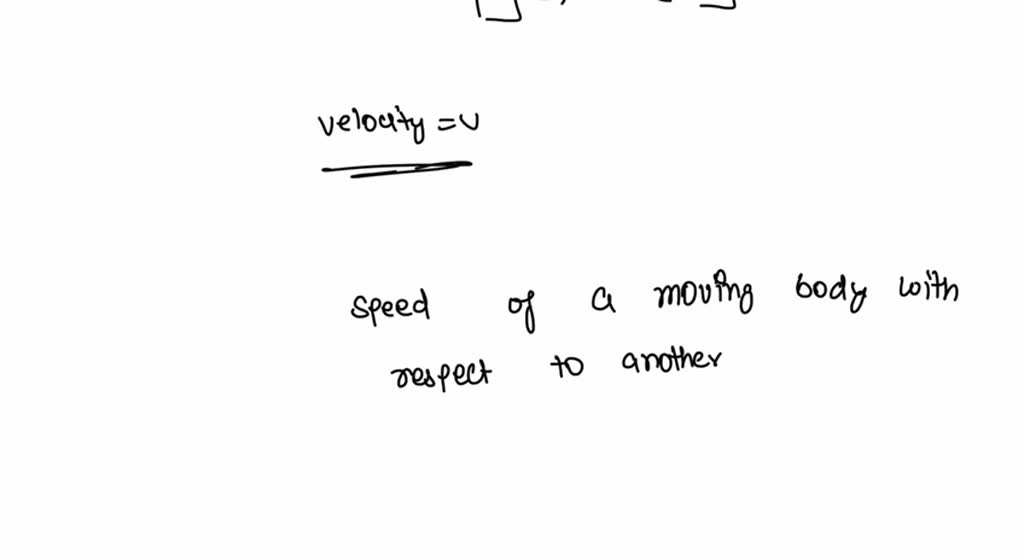 velocity = v
speed of a moving body with
respect to another